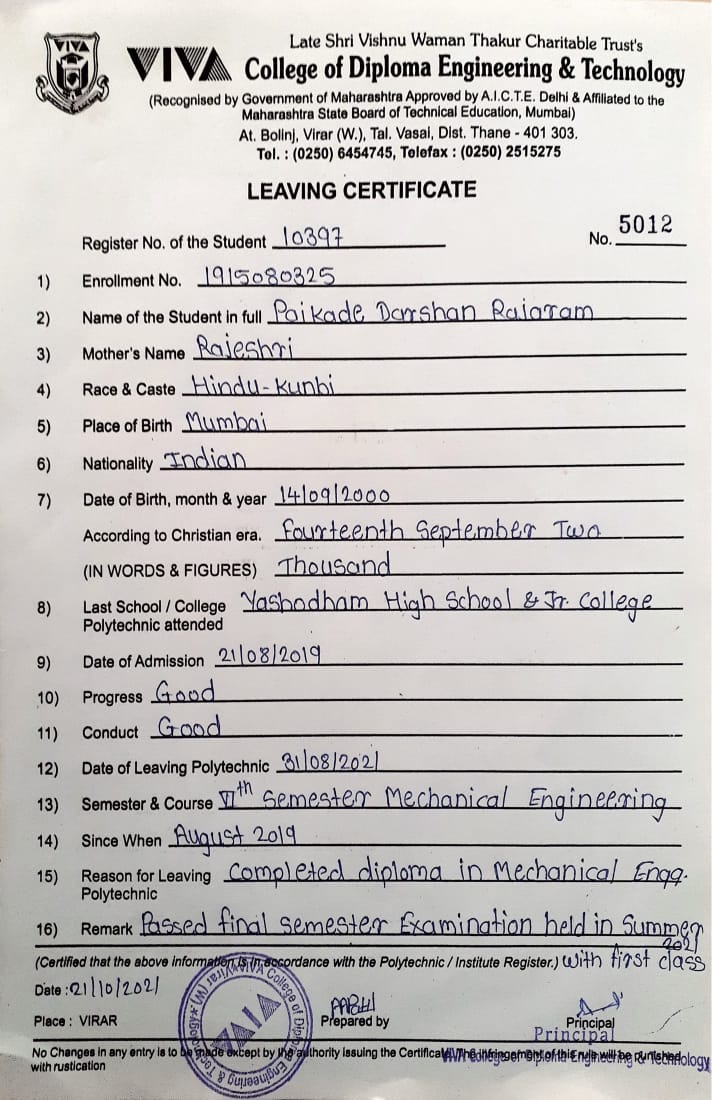 VIVA
Late Shri Vishnu Waman Thakur Charitable Trust's
VIVA College of Diploma Engineering & Technology
(Recognised by Government of Maharashtra Approved by A.I.C.T.E. Delhi & Affiliated to the
Maharashtra State Board of Technical Education, Mumbai)
At. Bolinj, Virar (W.), Tal. Vasai, Dist. Thane - 401 303.
Tel. : (0250) 6454745, Telefax : (0250) 2515275
LEAVING CERTIFICATE
Register No. of the Student 10397 No. 5012
1) Enrollment No. 1915080325
2) Name of the Student in full Paikade Darshan Rajaram
3) Mother's Name Rajeshri
4) Race & Caste Hindu-Kunbi
5) Place of Birth Mumbai
6) Nationality Indian
7) Date of Birth, month & year 14/09/2000
According to Christian era. fourteenth September Two
(IN WORDS & FIGURES) Thousand
8) Last School / College Yashodham High School & Jr. College
Polytechnic attended
9) Date of Admission 21/08/2019
10) Progress Good
11) Conduct Good
12) Date of Leaving Polytechnic 31/08/2021
13) Semester & Course VIth Semester Mechanical Engineering
14) Since When August 2019
15) Reason for Leaving Completed diploma in Mechanical Engg.
Polytechnic
16) Remark Passed final semester Examination held in Summer
2021
(Certified that the above information is in accordance with the Polytechnic / Institute Register.) with first class
Date : 21/10/2021
Place : VIRAR Prepared by Principal
Principal
No Changes in any entry is to be made except by the authority issuing the Certificate. The infringement of this rule will be punished
with rustication
VIVA College of Diploma Engineering & Technology
VIVA College of Diploma Engineering & Technology Virar (W)
VIVA